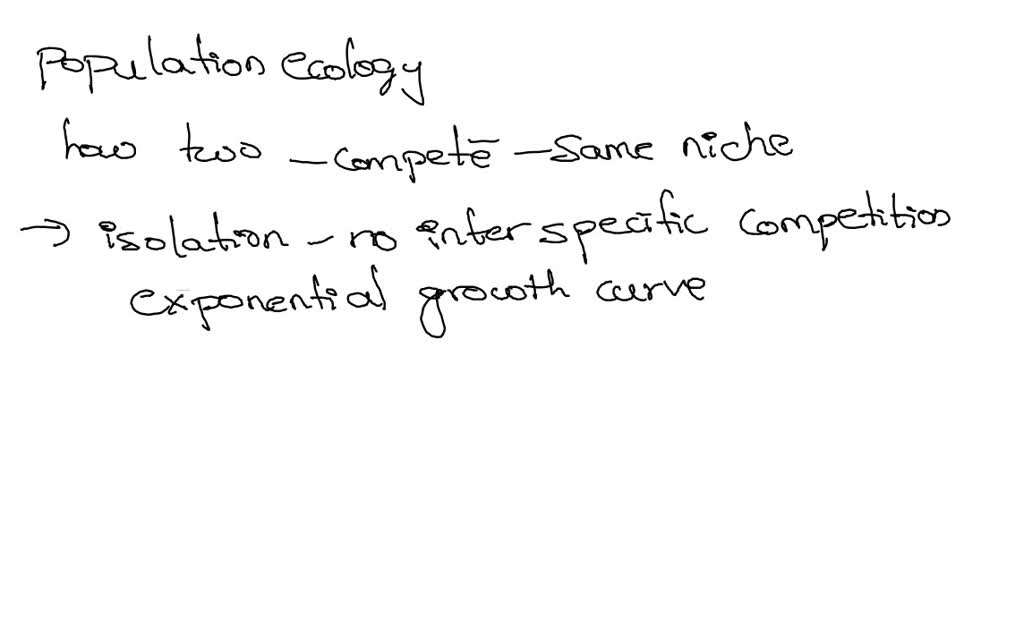 Population ecology
how two – compete – Same niche
→ isolation – no interspecific competition
exponential growth curve